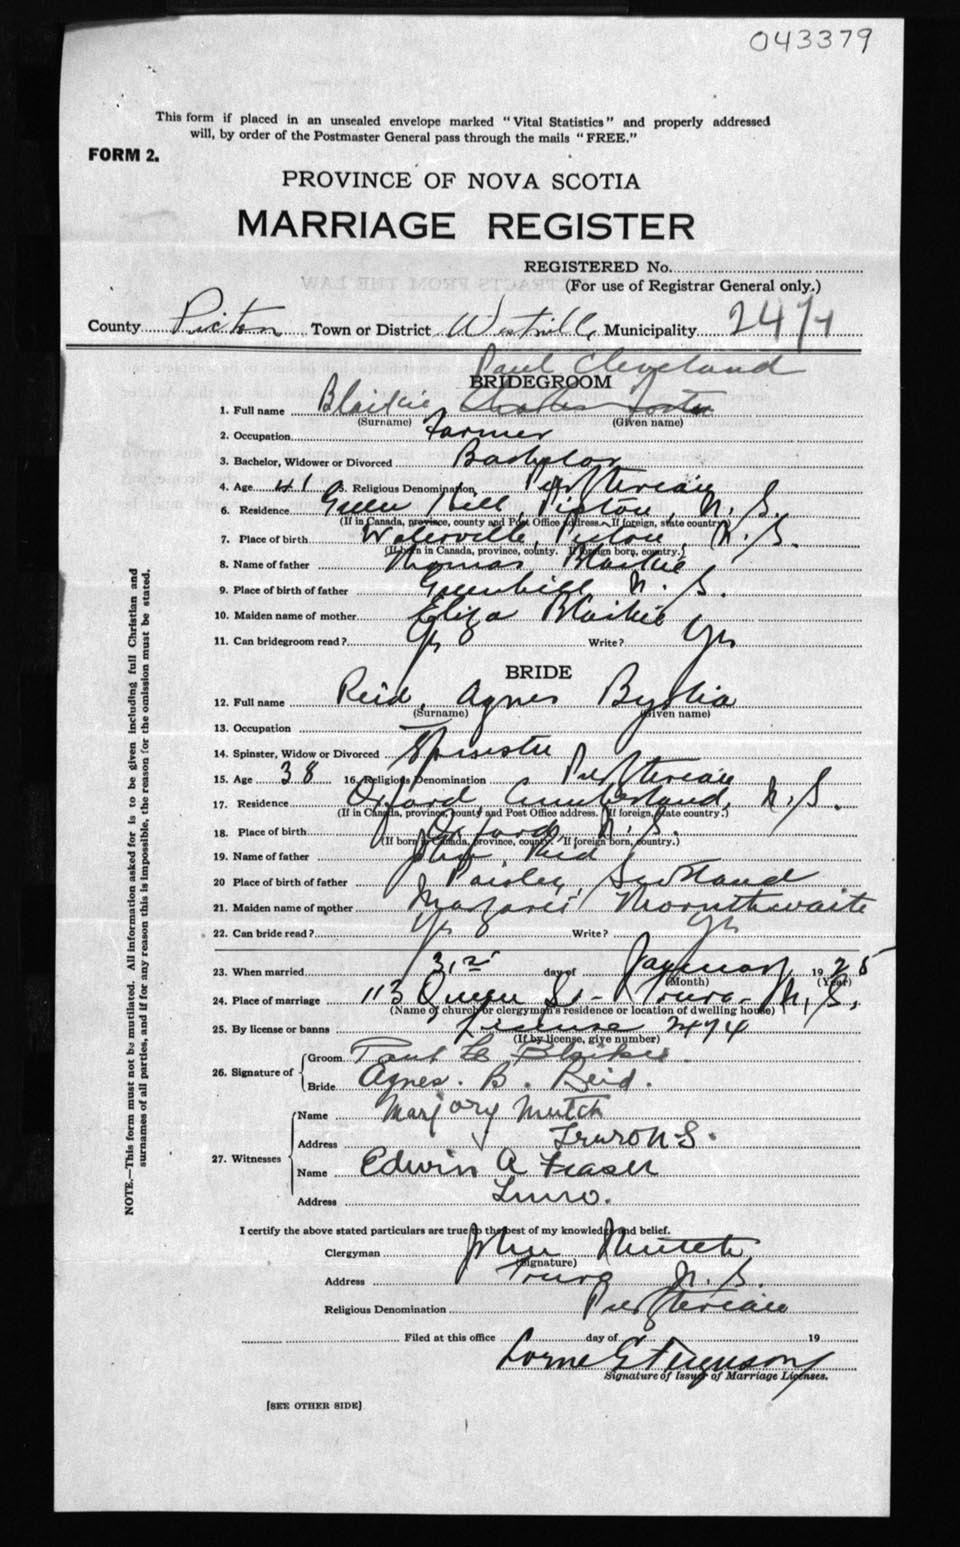 043379
This form if placed in an unsealed envelope marked "Vital Statistics" and properly addressed
will, by order of the Postmaster General pass through the mails "FREE."
FORM 2.
PROVINCE OF NOVA SCOTIA
MARRIAGE REGISTER
REGISTERED No.
(For use of Registrar General only.)
County Pictou Town or District Westville Municipality 2474
Paul Cleveland
BRIDEGROOM
1. Full name Blaikie Charles Foster
(Surname) (Given name)
2. Occupation Farmer
3. Bachelor, Widower or Divorced Bachelor
4. Age 41 5. Religious Denomination Presbyterian
6. Residence Green Hill, Pictou, N.S.
(If in Canada, province, county and Post Office address. If foreign, state country.)
7. Place of birth Waterville, Pictou, N.S.
(If born in Canada, province, county. If foreign born, country.)
8. Name of father Thomas Blaikie
9. Place of birth of father Greenhill N.S.
10. Maiden name of mother Eliza Blaikie
11. Can bridegroom read? Yes Write? Yes
BRIDE
12. Full name Reid, Agnes
(Surname) (Given name)
13. Occupation —
14. Spinster, Widow or Divorced Spinster
15. Age 38 16. Religious Denomination Presbyterian
17. Residence Oxford, Cumberland, N.S.
(If in Canada, province, county and Post Office address. If foreign, state country.)
18. Place of birth Oxford, N.S.
(If born in Canada, province, county. If foreign born, country.)
19. Name of father John Reid
20 Place of birth of father Paisley, Scotland
21. Maiden name of mother Margaret Thornthwaite
22. Can bride read? Yes Write? Yes
23. When married 31st day of January 1925
(Month) (Year)
24. Place of marriage 113 Queen St - Truro - N.S.
(Name of church or clergyman's residence or location of dwelling house)
25. By license or banns License 2474
(If by license, give number)
26. Signature of Groom Paul C Blaikie.
Bride Agnes. B. Reid.
27. Witnesses Name Marjory Mutch
Address Truro N.S.
Name Edwin A Fraser
Address Truro.
I certify the above stated particulars are true to the best of my knowledge and belief.
Clergyman John Mutch
(Signature)
Address Truro N.S.
Religious Denomination Presbyterian
Filed at this office day of 19
Lorne G Ferguson
Signature of Issuer of Marriage Licenses.
[SEE OTHER SIDE]
NOTE.—This form must not be mutilated. All information asked for is to be given including full Christian and
surnames of all parties, and if for any reason this is impossible, the reason for the omission must be stated.